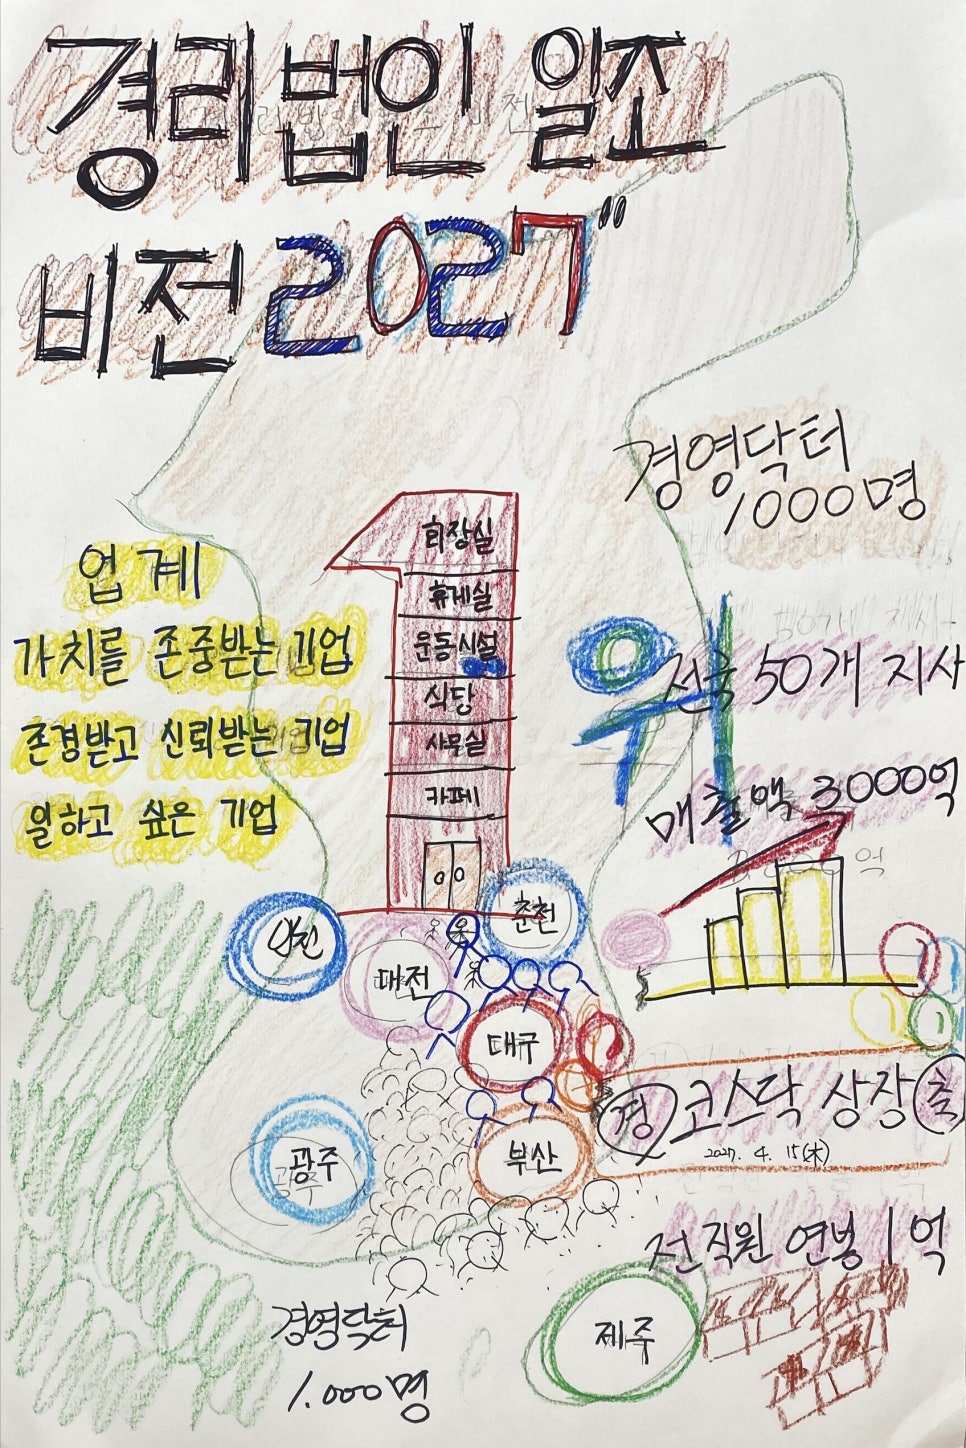 경리법인 일조
비전 2027"
경영닥터
1000명
업계
가치를 존중받는 기업
존경받고 신뢰받는 기업
일하고 싶은 기업
회장실
휴게실
운동시설
식당
사무실
카페
위
전국 50개 지사
매출액 3000억
춘천
대전
대구
광주
부산
제주
경 코스닥 상장 축
2027. 4. 15(木)
전직원 연봉 1억
경영닥터
1.000명